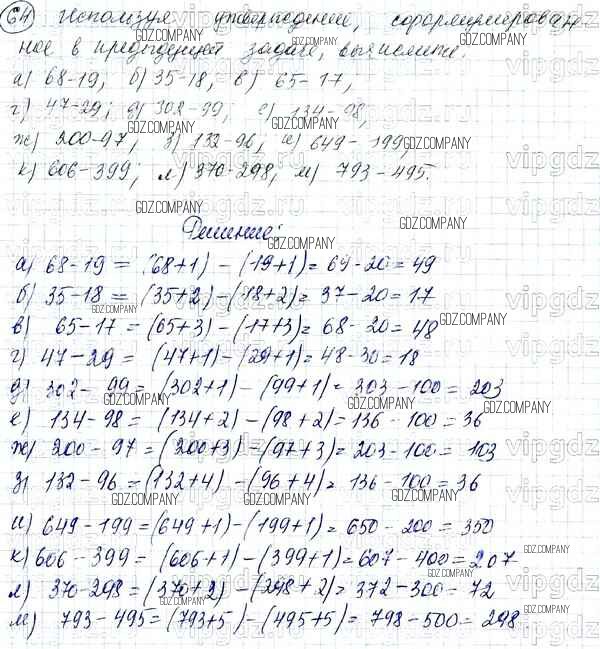 64 Используя утверждение, сформулирован-
ное в предыдущей задаче, вычислите.
а) 68-19, б) 35-18, в) 65-17,
г) 47-29; д) 302-99; е) 134-98,
ж) 200-97, з) 132-96, и) 649-199,
к) 606-399; л) 370-298, м) 793-495.
Решение:
а) 68-19 = (68+1) - (19+1) = 69-20 = 49
б) 35-18 = (35+2) - (18+2) = 37-20 = 17
в) 65-17 = (65+3) - (17+3) = 68-20 = 48
г) 47-29 = (47+1) - (29+1) = 48-30 = 18
д) 302-99 = (302+1) - (99+1) = 303-100 = 203
е) 134-98 = (134+2) - (98+2) = 136-100 = 36
ж) 200-97 = (200+3) - (97+3) = 203-100 = 103
з) 132-96 = (132+4) - (96+4) = 136-100 = 36
и) 649-199 = (649+1) - (199+1) = 650-200 = 350
к) 606-399 = (606+1) - (399+1) = 607-400 = 207
л) 370-298 = (370+2) - (298+2) = 372-300 = 72
м) 793-495 = (793+5) - (495+5) = 798-500 = 298